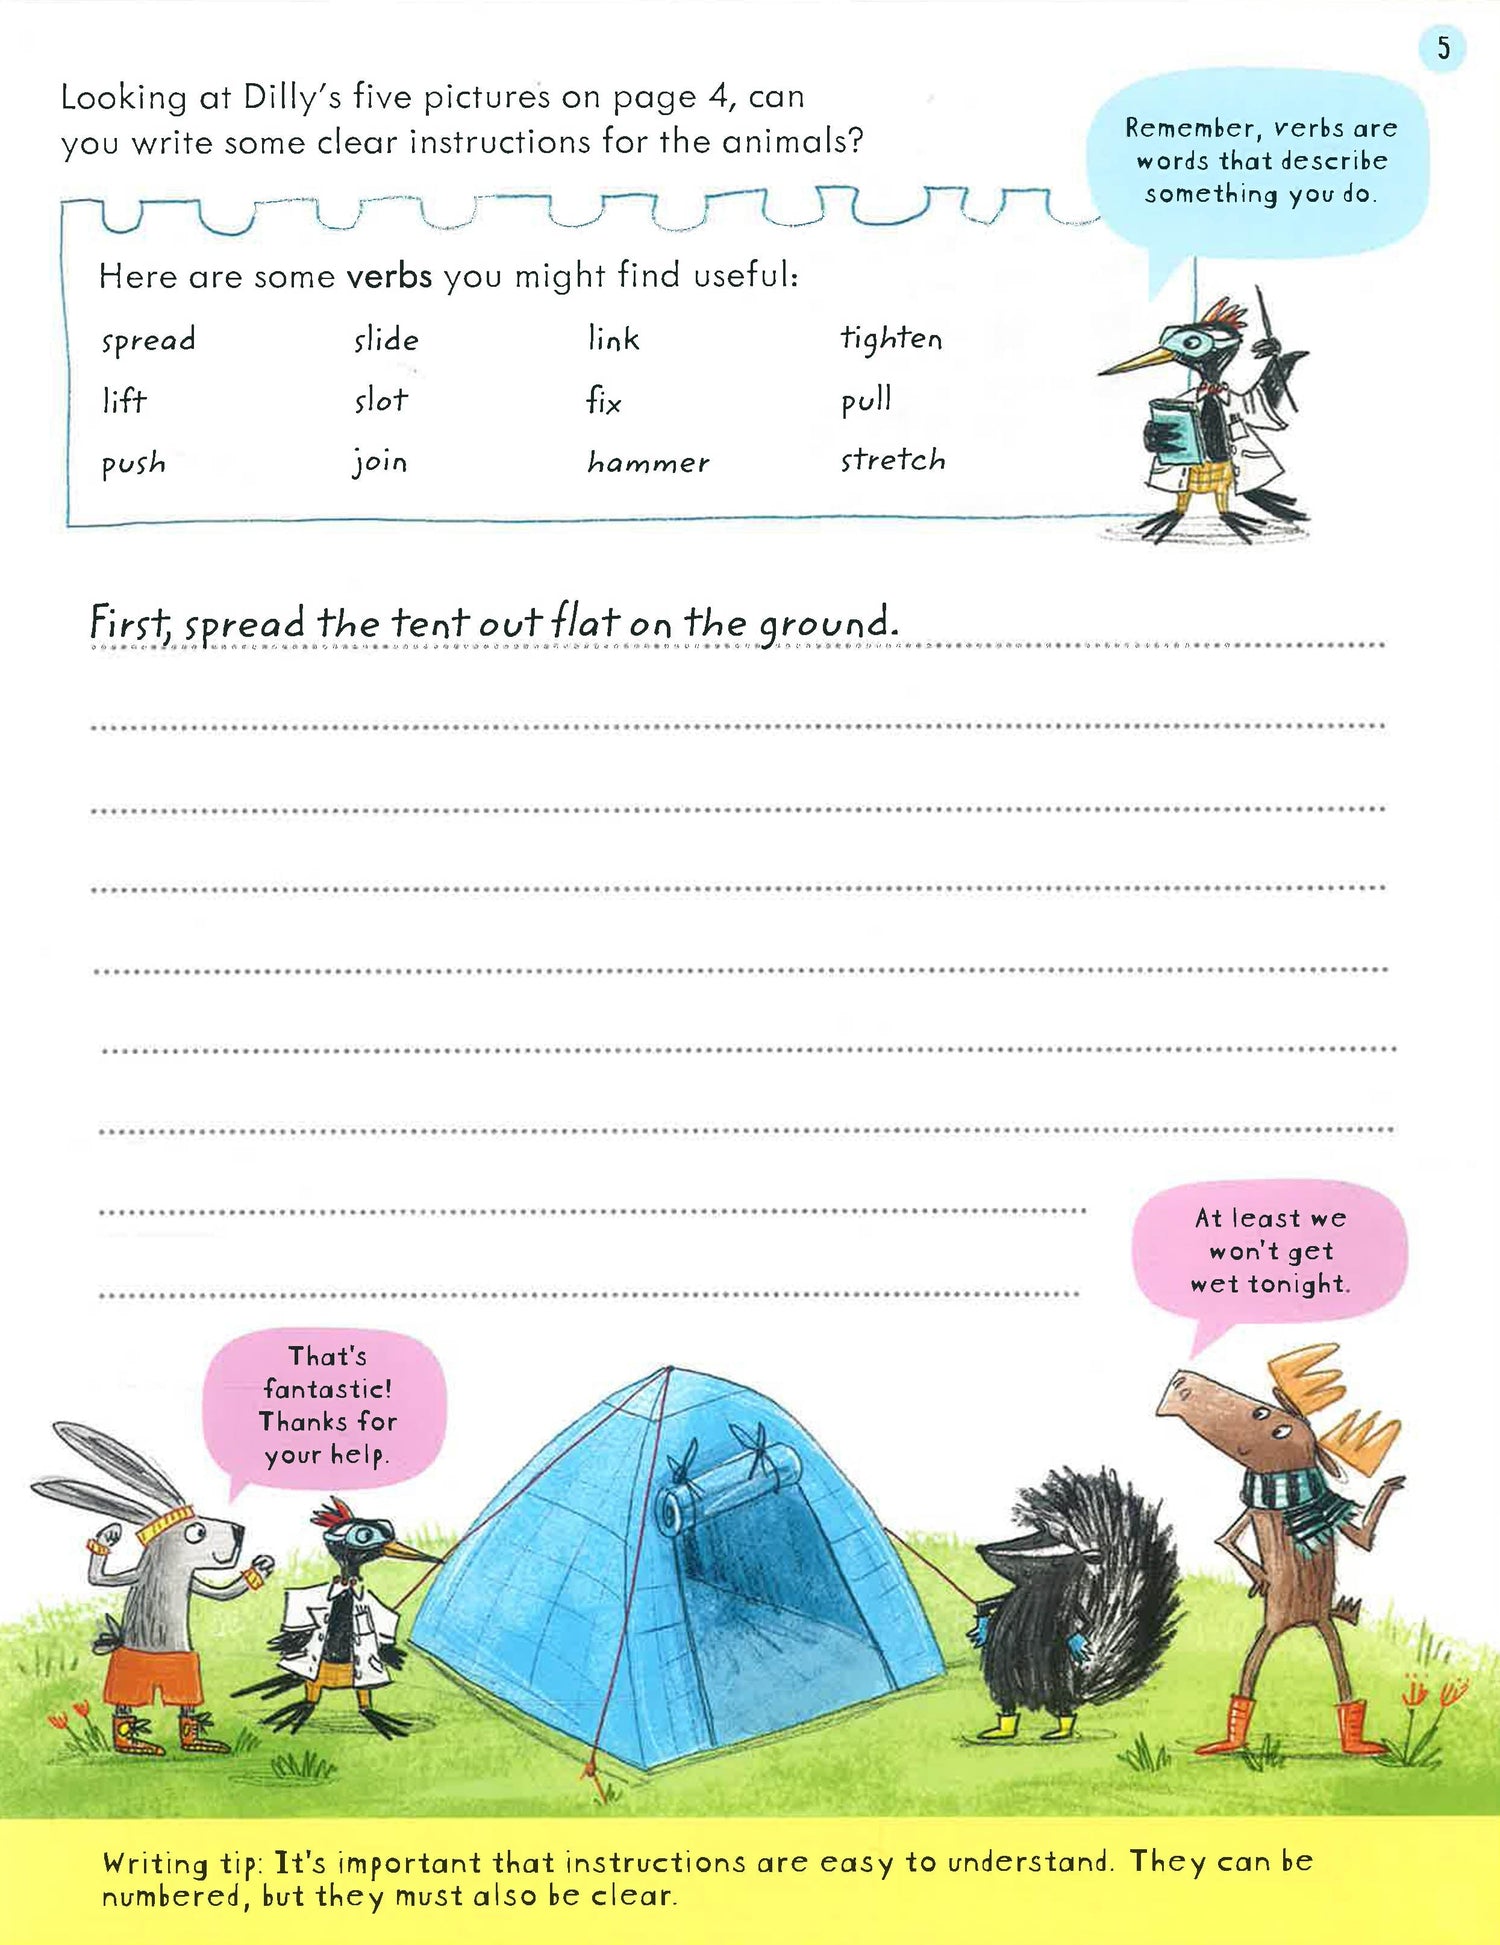 5
Looking at Dilly's five pictures on page 4, can
you write some clear instructions for the animals?
Remember, verbs are
words that describe
something you do.
Here are some verbs you might find useful:
spread slide link tighten
lift slot fix pull
push join hammer stretch
First, spread the tent out flat on the ground.
At least we
won't get
wet tonight.
That's
fantastic!
Thanks for
your help.
Writing tip: It's important that instructions are easy to understand. They can be
numbered, but they must also be clear.